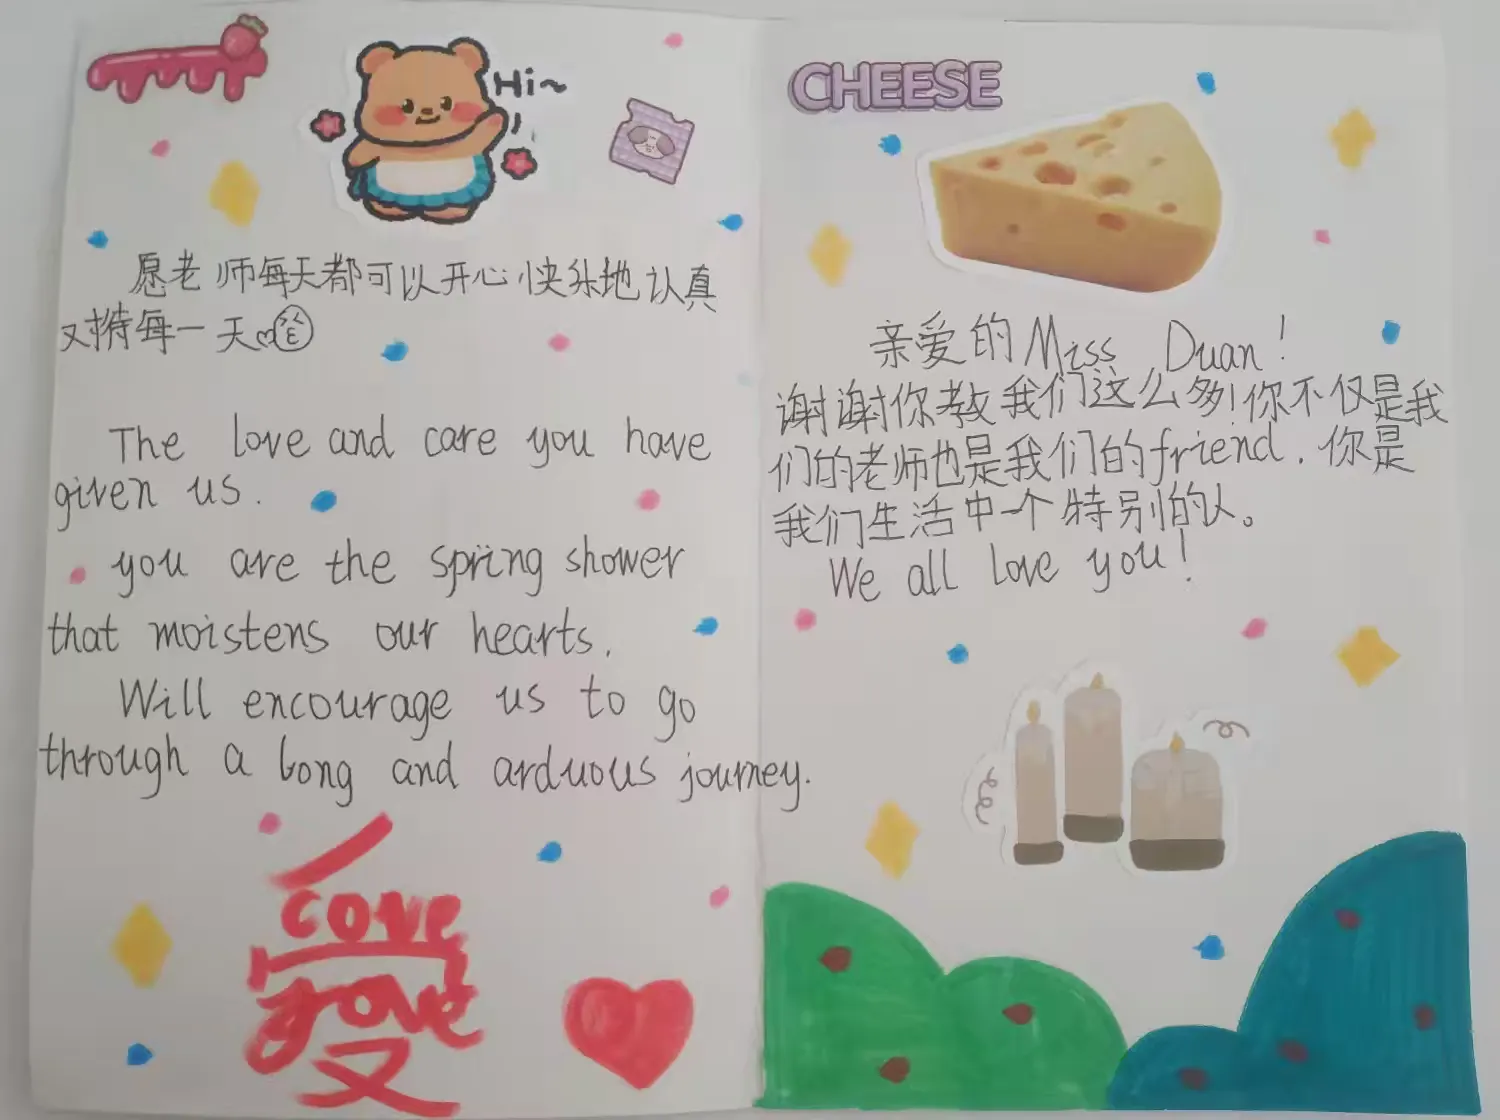 Hi~
愿老师每天都可以开心快乐地认真
对待每一天
The love and care you have
given us.
you are the spring shower
that moistens our hearts.
Will encourage us to go
through a long and arduous journey.
love
CHEESE
亲爱的Miss Duan!
谢谢你教我们这么多!你不仅是我
们的老师也是我们的friend.你是
我们生活中一个特别的人。
We all love you!